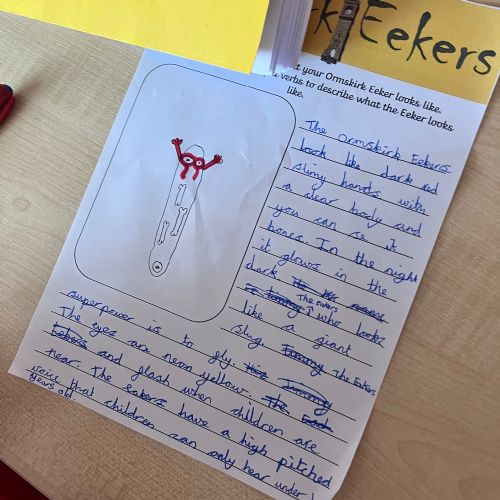 rk Eekers
at your Ormskirk Eeker looks like.
verbs to describe what the Eeker looks
like.
The Ormskirk Eekers
look like dark red
slimy hands with
a clear body and
you can se it
bones. In the night
it glows in the
dark.
The Eekers
who looks
like a giant
slug. The Eekers
superpower is to fly.
The eyes are neon yellow.
and flash when children are
near. The Eekers have a high pitched
voice that children can only hear under 1
years old.